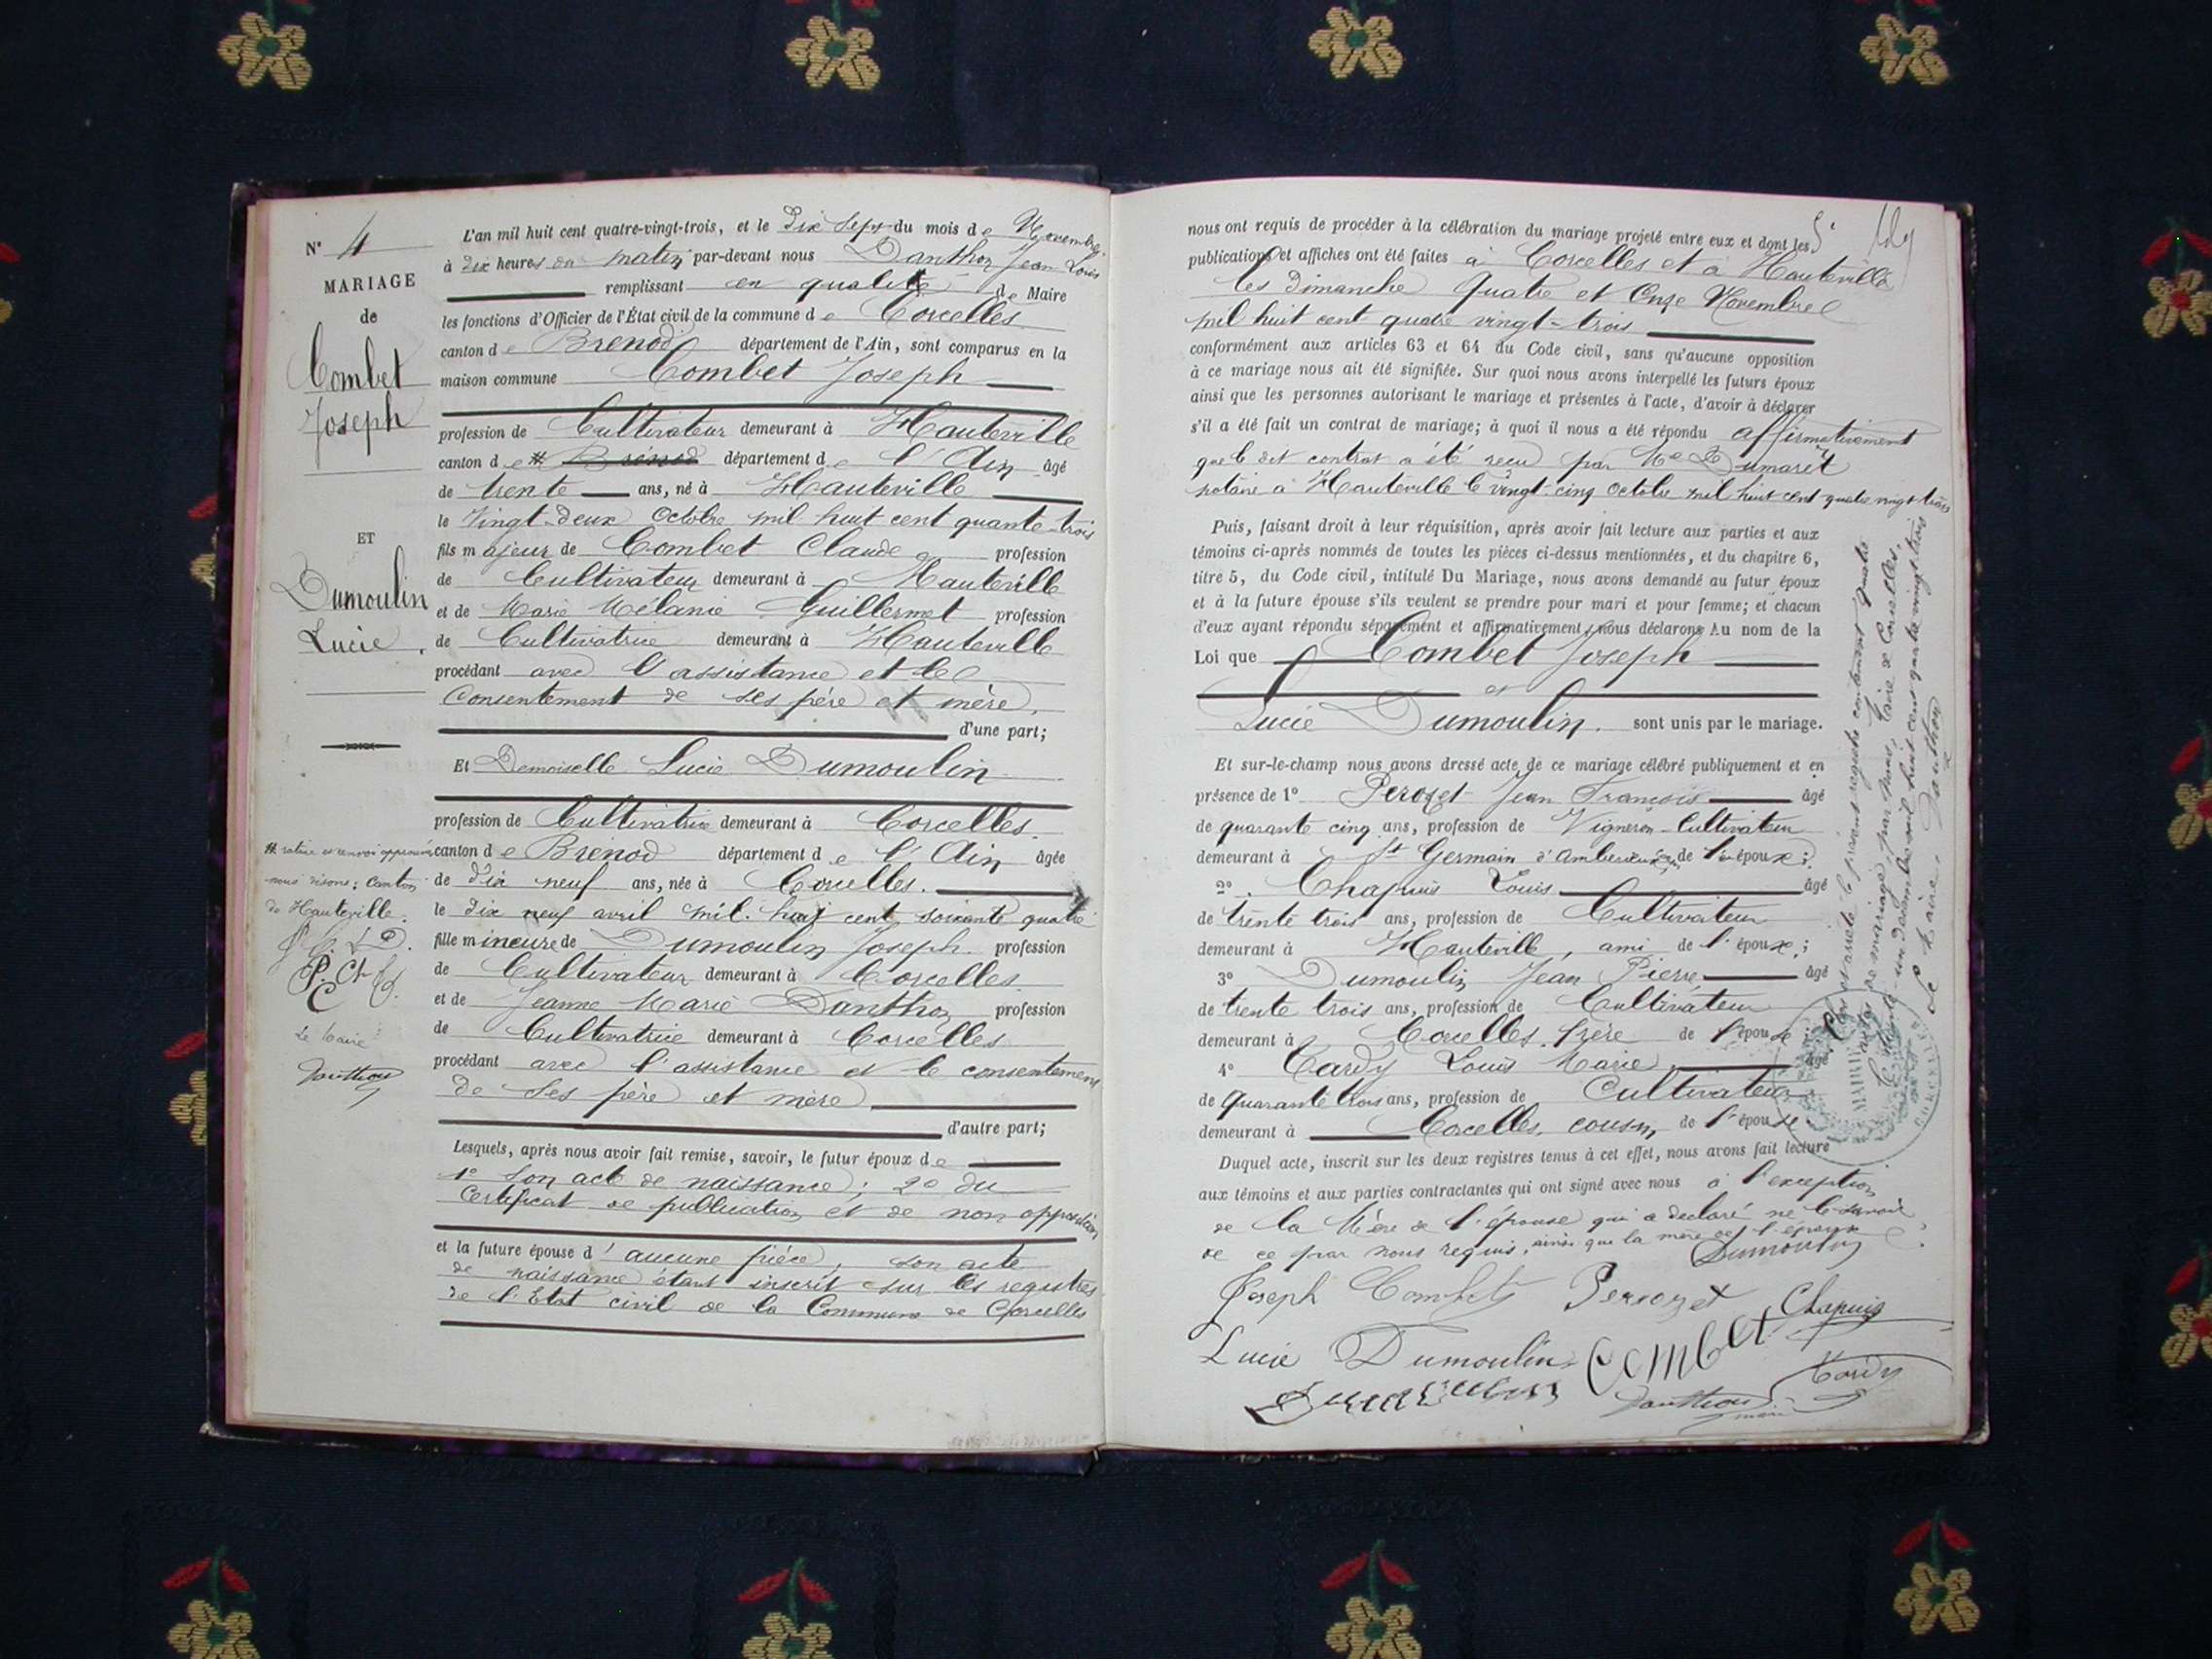 N° 4
MARIAGE
de
Combet
Joseph
ET
Dumoulin
Lucie.
# rature et renvoi approuvés
nous disons; Canton
de Hauteville.
J C. L D.
P. Ch
Le Maire
Danthon
L'an mil huit cent quatre-vingt-trois, et le Dix Sept du mois de Novembre
à dix heures du matin par-devant nous Danthon Jean Louis
remplissant en qualité de Maire
les fonctions d'Officier de l'État civil de la commune de Corcelles
canton de Brenod département de l'Ain, sont comparus en la
maison commune Combet Joseph
profession de Cultivateur demeurant à Hauteville
canton de # Brenod département de l'Ain âgé
de trente ans, né à Hauteville
le Vingt-deux Octobre mil huit cent quante-trois
fils majeur de Combet Claude profession
de Cultivateur demeurant à Hauteville
et de Marie Mélanie Guillermet profession
de Cultivatrice demeurant à Hauteville
procédant avec l'assistance et le
Consentement de ses père et mère,
d'une part;
Et Demoiselle Lucie Dumoulin
profession de Cultivatrice demeurant à Corcelles.
canton de Brenod département de l'Ain âgée
de dix neuf ans, née à Corcelles.
le dix neuf avril mil huit cent soixante quatre
fille mineure de Dumoulin Joseph profession
de Cultivateur demeurant à Corcelles.
et de Jeanne Marie Danthon profession
de Cultivatrice demeurant à Corcelles
procédant avec l'assistance et le consentement
de ses père et mère
d'autre part;
Lesquels, après nous avoir fait remise, savoir, le futur époux de
1° son acte de naissance; 2° du
Certificat de publication et de non opposition
et la future épouse d'aucune pièce, son acte
de naissance étant inscrit sur les registres
de l'Etat civil de la Commune de Corcelles
nous ont requis de procéder à la célébration du mariage projeté entre eux et dont les
publications et affiches ont été faites à Corcelles et à Hauteville
les dimanche Quatre et Onze Novembre
mil huit cent quatre vingt-trois
conformément aux articles 63 et 64 du Code civil, sans qu'aucune opposition
à ce mariage nous ait été signifiée. Sur quoi nous avons interpellé les futurs époux
ainsi que les personnes autorisant le mariage et présentes à l'acte, d'avoir à déclarer
s'il a été fait un contrat de mariage; à quoi il nous a été répondu affirmativement
que le dit contrat a été reçu par Me Dumaret
notaire à Hauteville le vingt-cinq Octobre mil huit cent quatre vingt trois
Puis, faisant droit à leur réquisition, après avoir fait lecture aux parties et aux
témoins ci-après nommés de toutes les pièces ci-dessus mentionnées, et du chapitre 6,
titre 5, du Code civil, intitulé Du Mariage, nous avons demandé au futur époux
et à la future épouse s'ils veulent se prendre pour mari et pour femme; et chacun
d'eux ayant répondu séparément et affirmativement, nous déclarons Au nom de la
Loi que Combet Joseph
et
Lucie Dumoulin. sont unis par le mariage.
Et sur-le-champ nous avons dressé acte de ce mariage célébré publiquement et en
présence de 1° Perozet Jean François âgé
de quarante cinq ans, profession de Vigneron-Cultivateur
demeurant à St Germain d'Amberieux, de l'époux;
2° Chapuis Louis âgé
de trente trois ans, profession de Cultivateur
demeurant à Hauteville, ami de l'époux;
3° Dumoulin Jean Pierre âgé
de trente trois ans, profession de Cultivateur
demeurant à Corcelles, frère de l'épouse;
4° Tardy Louis Marie âgé
de quarante trois ans, profession de Cultivateur
demeurant à Corcelles, cousin, de l'épouse.
Duquel acte, inscrit sur les deux registres tenus à cet effet, nous avons fait lecture
aux témoins et aux parties contractantes qui ont signé avec nous à l'exception
de la Mère de l'épouse qui a déclaré ne le savoir
de ce par nous requis, ainsi que la mère de l'époux
Dumoulin
Joseph Combet Perrozet Chapuis
Lucie Dumoulin Combet Tardy
Dumoulin Danthon maire
Clos et arrêté le présent registre contenant quatre
actes de mariage, par Nous, Maire de Corcelles,
le trente-un décembre mil huit cent quatre vingt trois
Le Maire, Danthon
MAIRIE